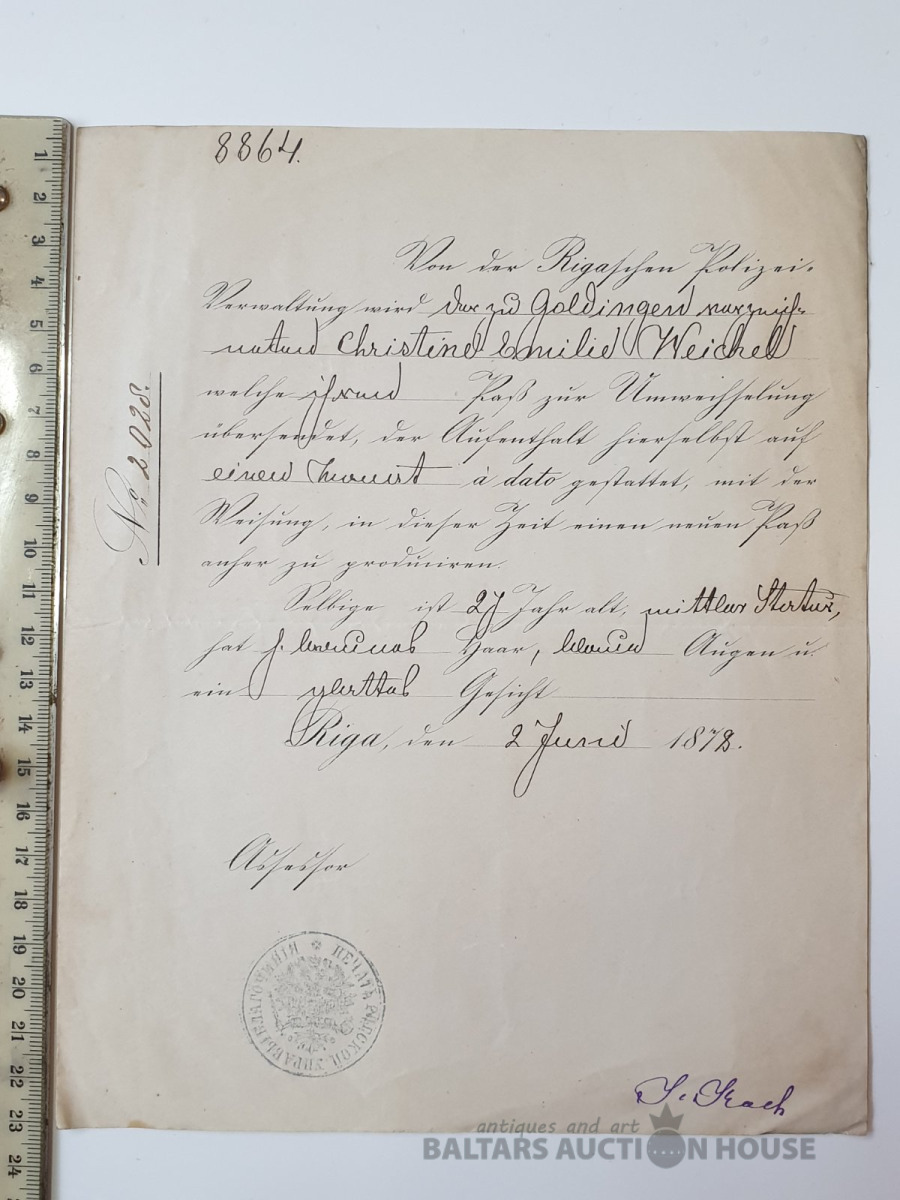 8864.
Von der Rigaschen Polizei-
Verwaltung wird der zu Goldingen verzeich-
neten Christine Emilie Weichel
welche ihren Paß zur Umwechselung
übersendet, der Aufenthalt hierselbst auf
einen Monat à dato gestattet, mit der
Weisung, in dieser Zeit einen neuen Paß
anher zu produciren.
Selbige ist 27 Jahr alt, mittler Statur,
hat braunes Haar, blaue Augen u.
ein glattes Gesicht
Riga, den 2 Juni 1872.
No 2028.
Assessor
ПЕЧАТЬ РИЖСКОЙ УПРАВЫ БЛАГОЧИНІЯ
antiques and art
BALTARS AUCTION HOUSE
1
2
3
4
5
6
7
8
9
10
11
12
13
14
15
16
17
18
19
20
21
22
23
24